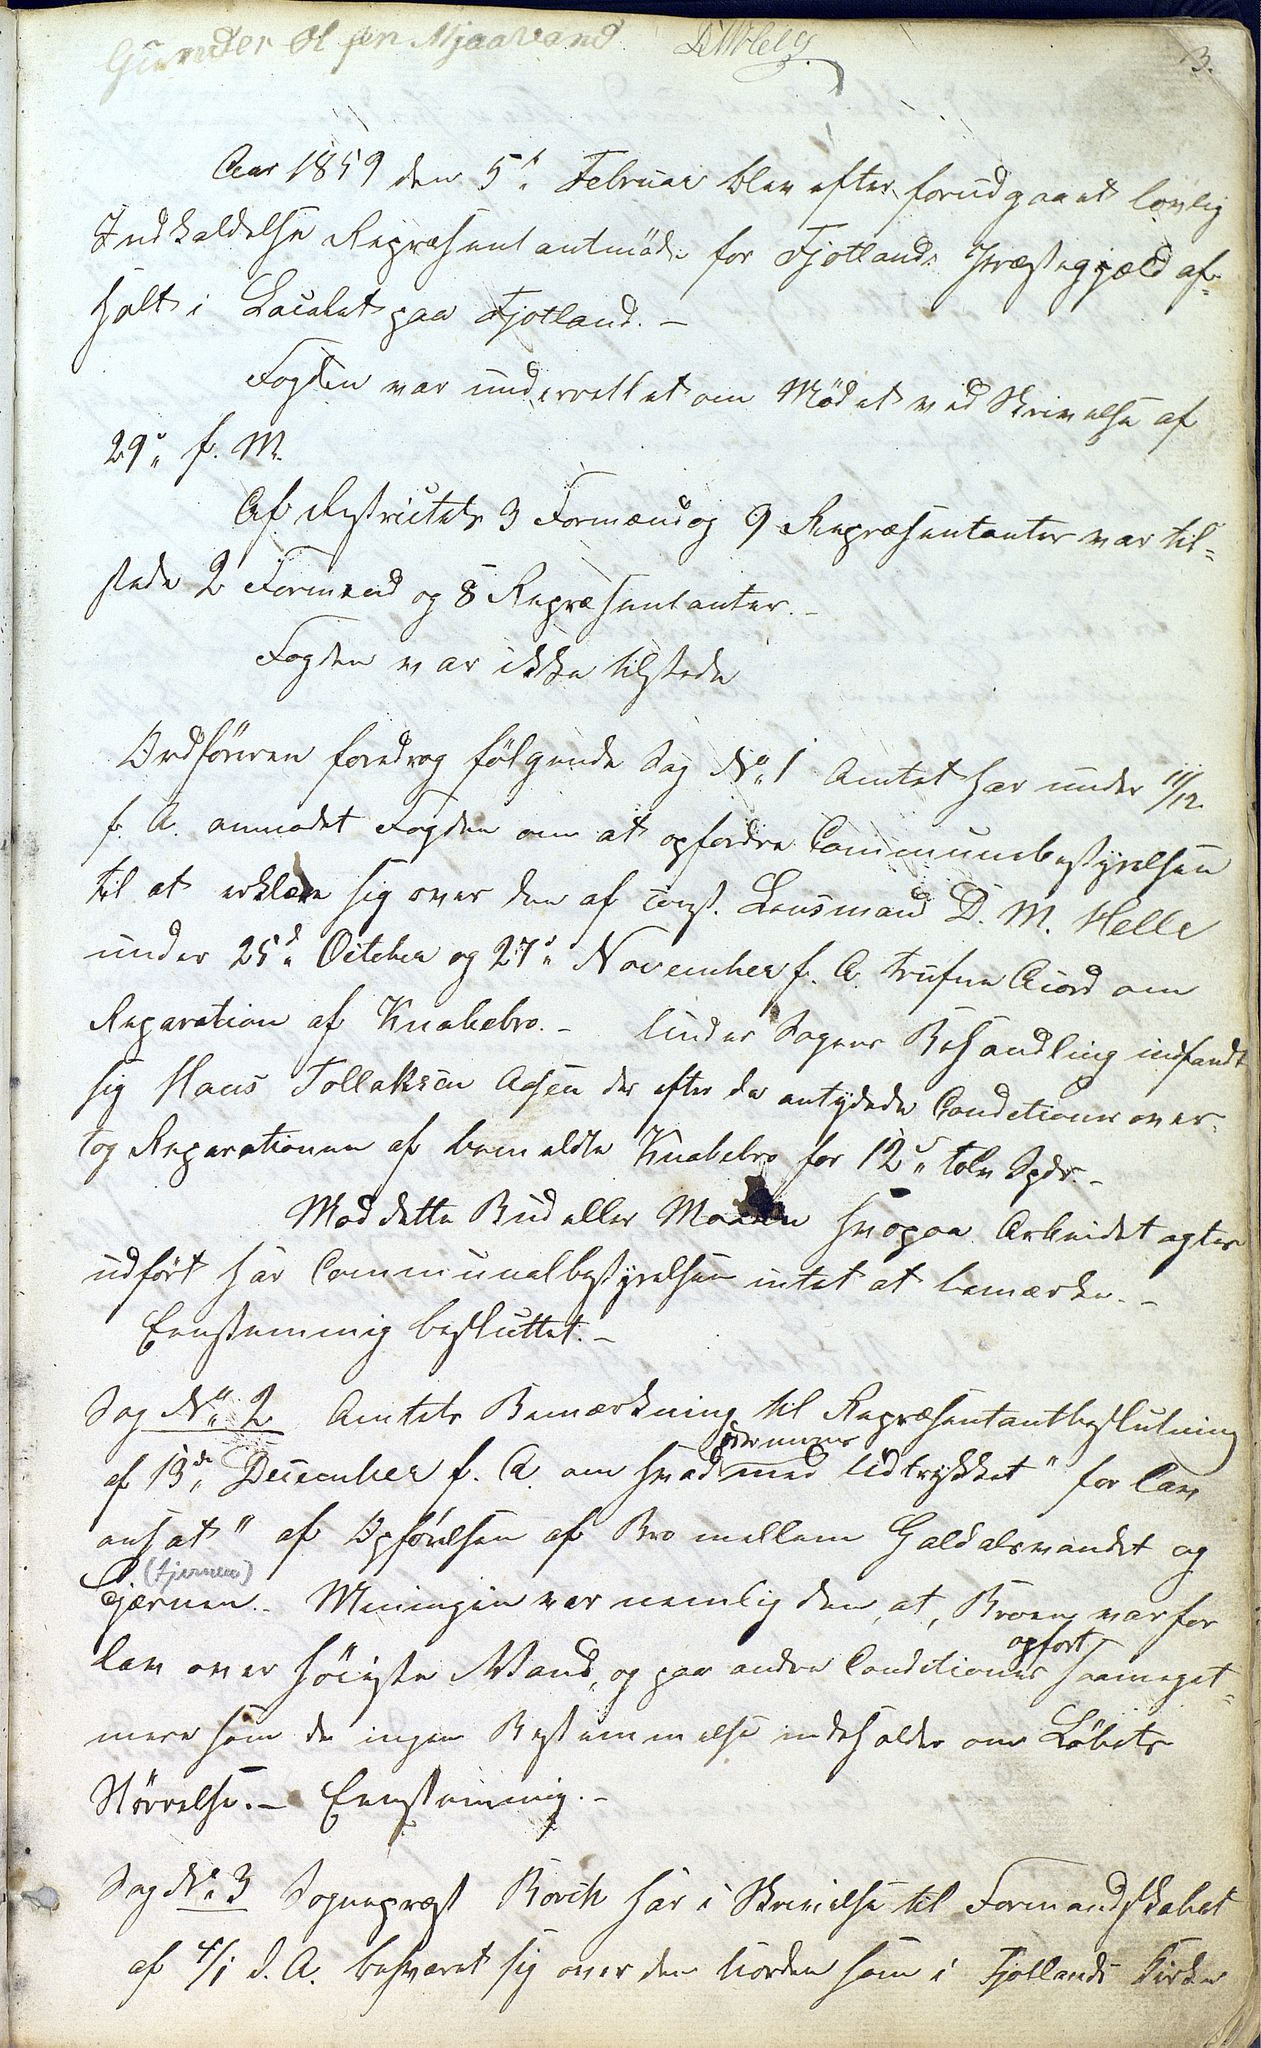 Gunder Olsen Mjaavand
3.
Aar 1859 den 5t Februar blev efter forudgaaet lovlig
Indkaldelse Repræsentantmöde for Fjotlands Præstegjæld af-
holt i Localet paa Fjotland. –
Fogden var underrettet om Mödet ved Skrivelse af
29de f. M.
Af Destrictets 3 Formænd og 9 Repræsentanter var til=
stede 2 Formænd og 8 Repræsentanter. –
Fogden var ikke tilstede
Ordföreren foredrog fölgende Sag No 1 Amtet har under 11/12
f. A. anmodet Fogden om at opfordre Communebestyrelsen
til at erklære sig over den af const. Lensmand D. M. Helle
under 25de October og 27de November f. A. trufne Acord om
Reparation af Knabebro. – Under Sagens Behandling indfandt
sig Hans Tollaksen Aasen der efter de antydede Conditioner over-
tog Reparationen af bemeldte Knabebro for 12 tolv Spdr. –
Mod dette Bud eller Maaden hvorpaa Arbeidet agtes
udfört har Communalbestyrelsen intet at bemærke. –
Eenstemmig besluttet. –
Sag No 2 Amtets Bemærkning til Repræsentantbeslutning
af 13de December f. A. om hvad der menes med Udtrykket " for lav
ansat " af Opförelsen af Bro mellem Galdalsvandet og
(tjernen)
Tjærnen. – Meningen var nemlig den, at, Broen var for
lav over höieste Vand, og paa andre Conditioner opfört saameget-
mere som de ingen Bestemmelse indeholder om Löbets
Störrelse. – Eenstemmig. –
Sag No 3 Sognepræst Rörch har i Skrivelse til Formandskabet
af 4/1 d. A. besværet sig over den Uorden som i Fjotlands Kirke